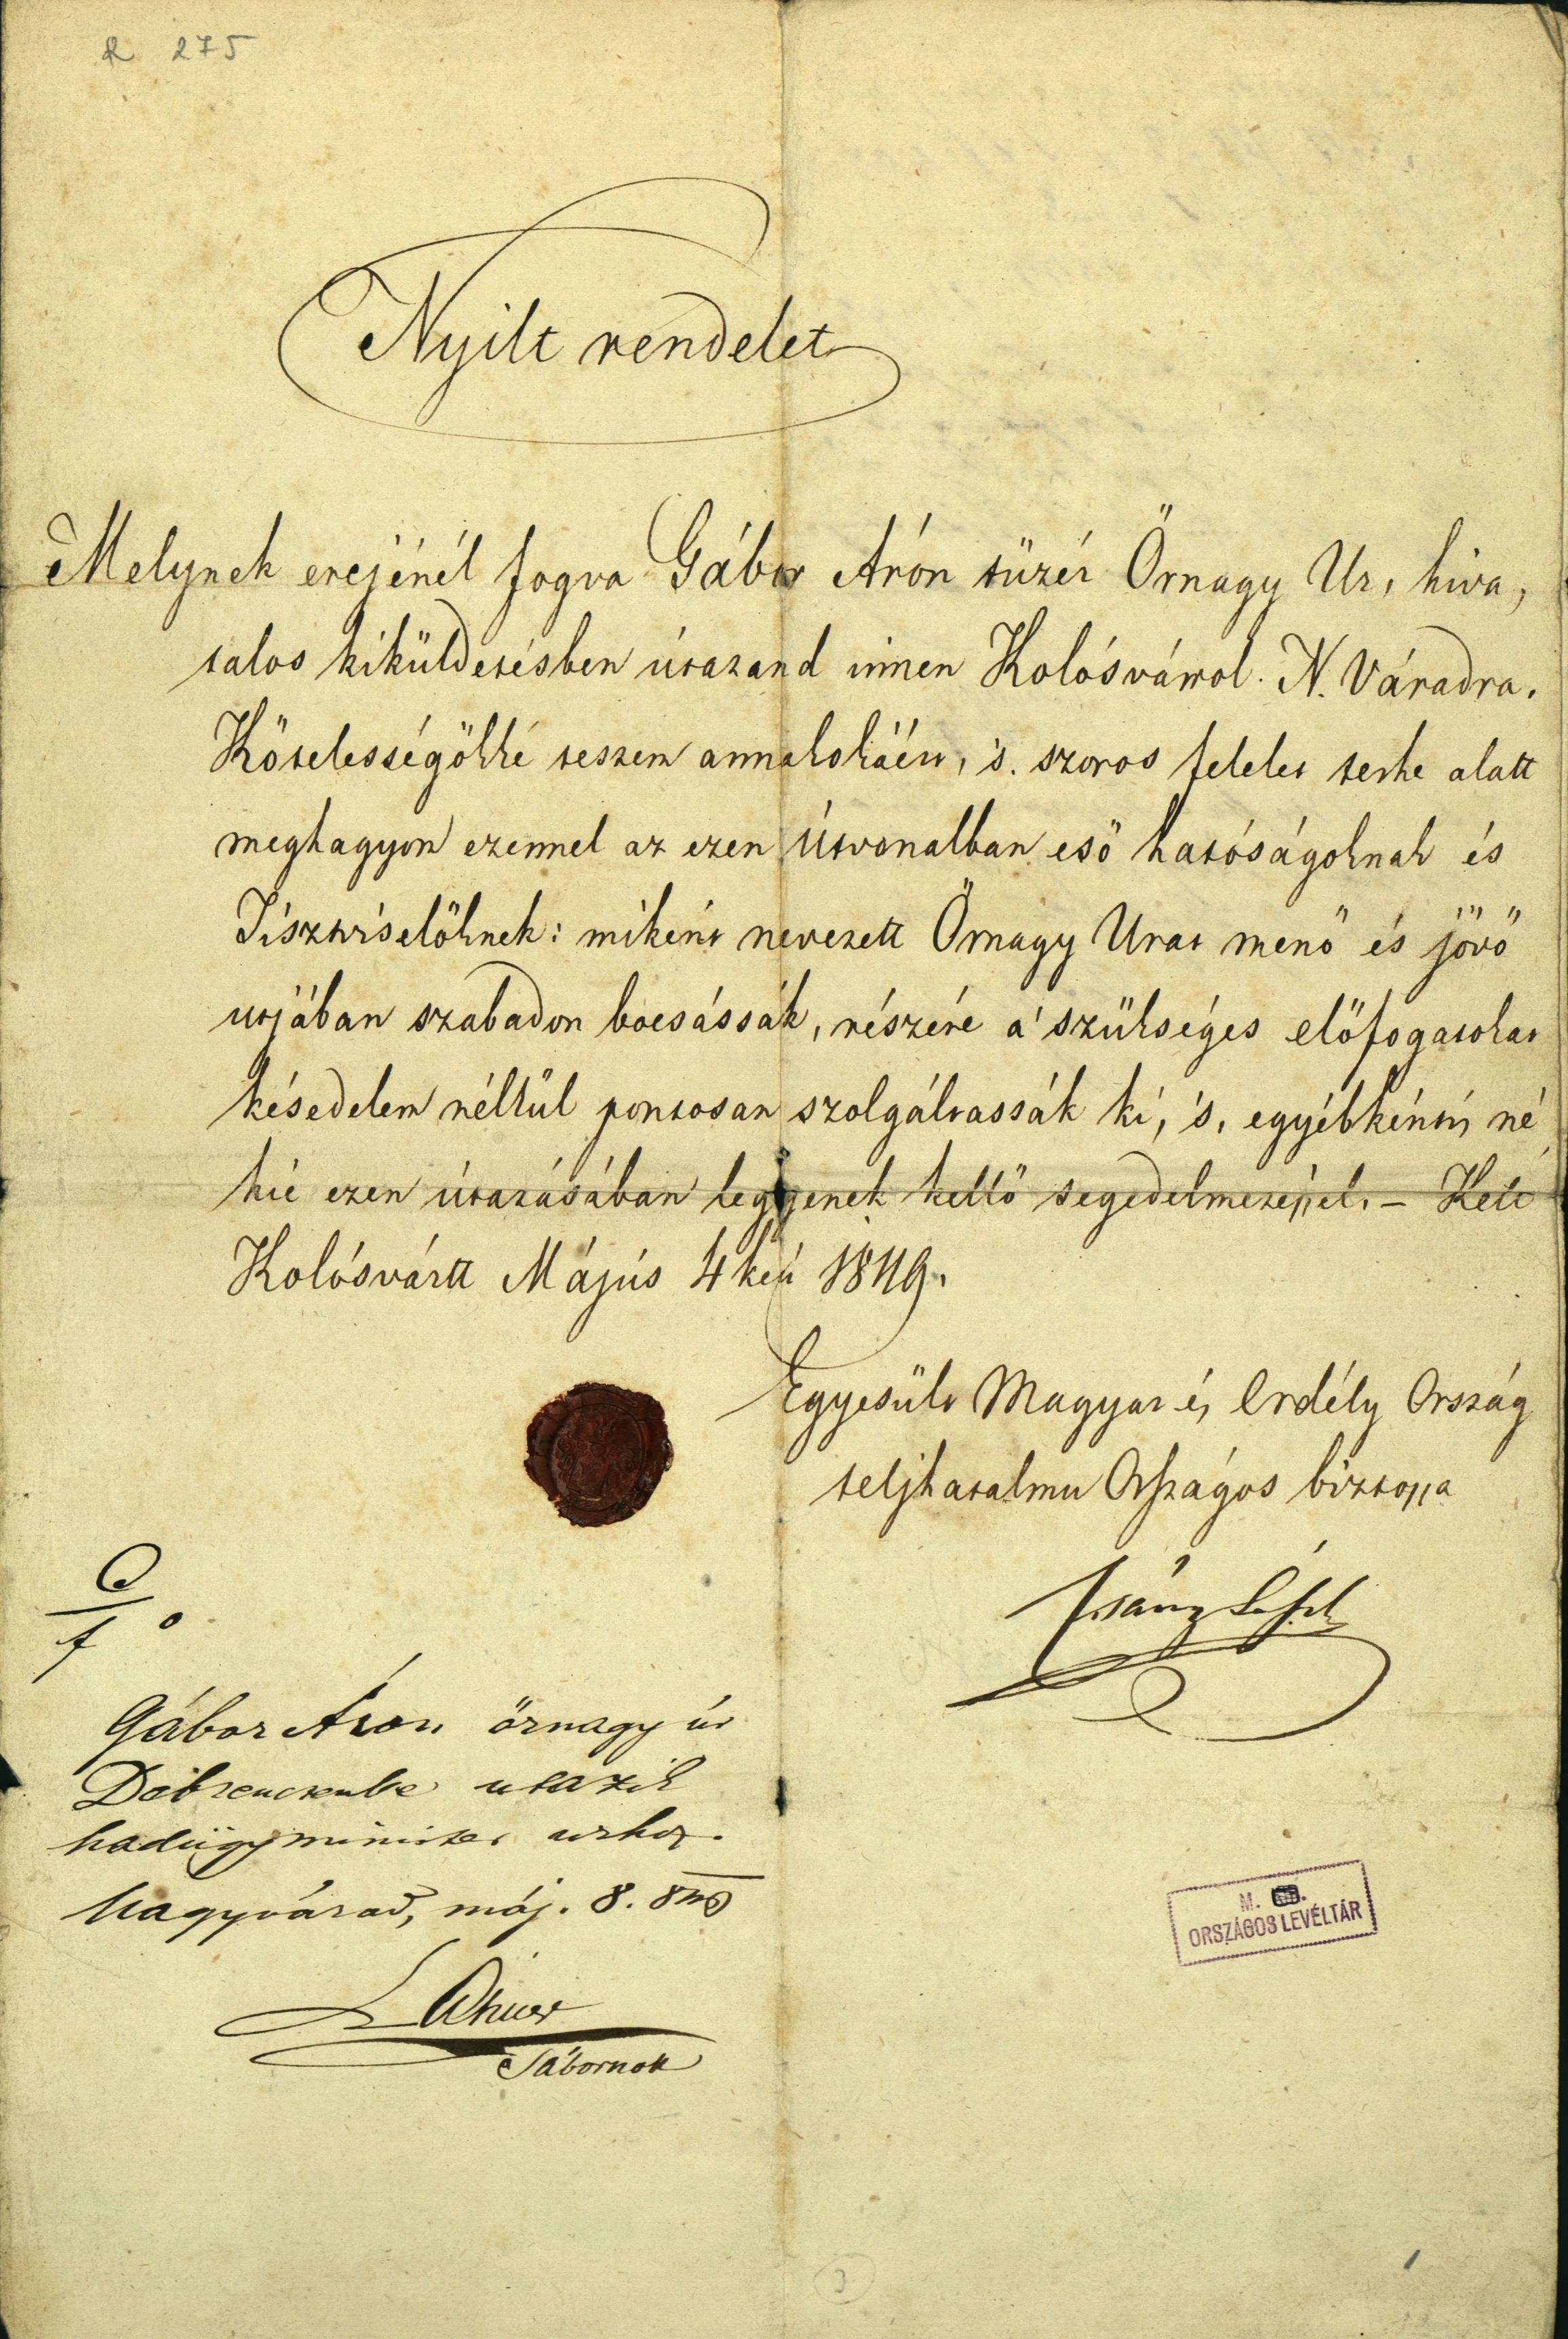 R 275
Nyilt rendelet
Melynek erejénél fogva Gábor Arón tüzér Örnagy Ur, hiva,
talos kiküldetésben útazand innen Kolósvárrol. N. Váradra.
Kötelességökké teszem annakokáért, 's. szoros felelet terhe alatt
meghagyom ezennel az ezen útvonalban esö hatóságoknak és
Tisztviselöknek: miként nevezett Örnagy Urat menö és jövö
utjában szabadon bocsássák, részére a' szükséges elöfogatokat
késedelem nélkül pontosan szolgáltassák ki, 's, egyébként is né
kie ezen útazásában legyenek kellö segedelmezéssel. – Kelt
Kolósvártt Május 4kén 1849.
Egyesült Magyar és Erdély Ország
teljhatalmu Országos biztossa
Csány László
Gábor Áron örnagy úr
Debrenczenbe utazik
hadügyminiszter urhoz.
Nagyvárad, máj. 8. 849
Tábornok
M.
ORSZÁGOS LEVÉLTÁR
3